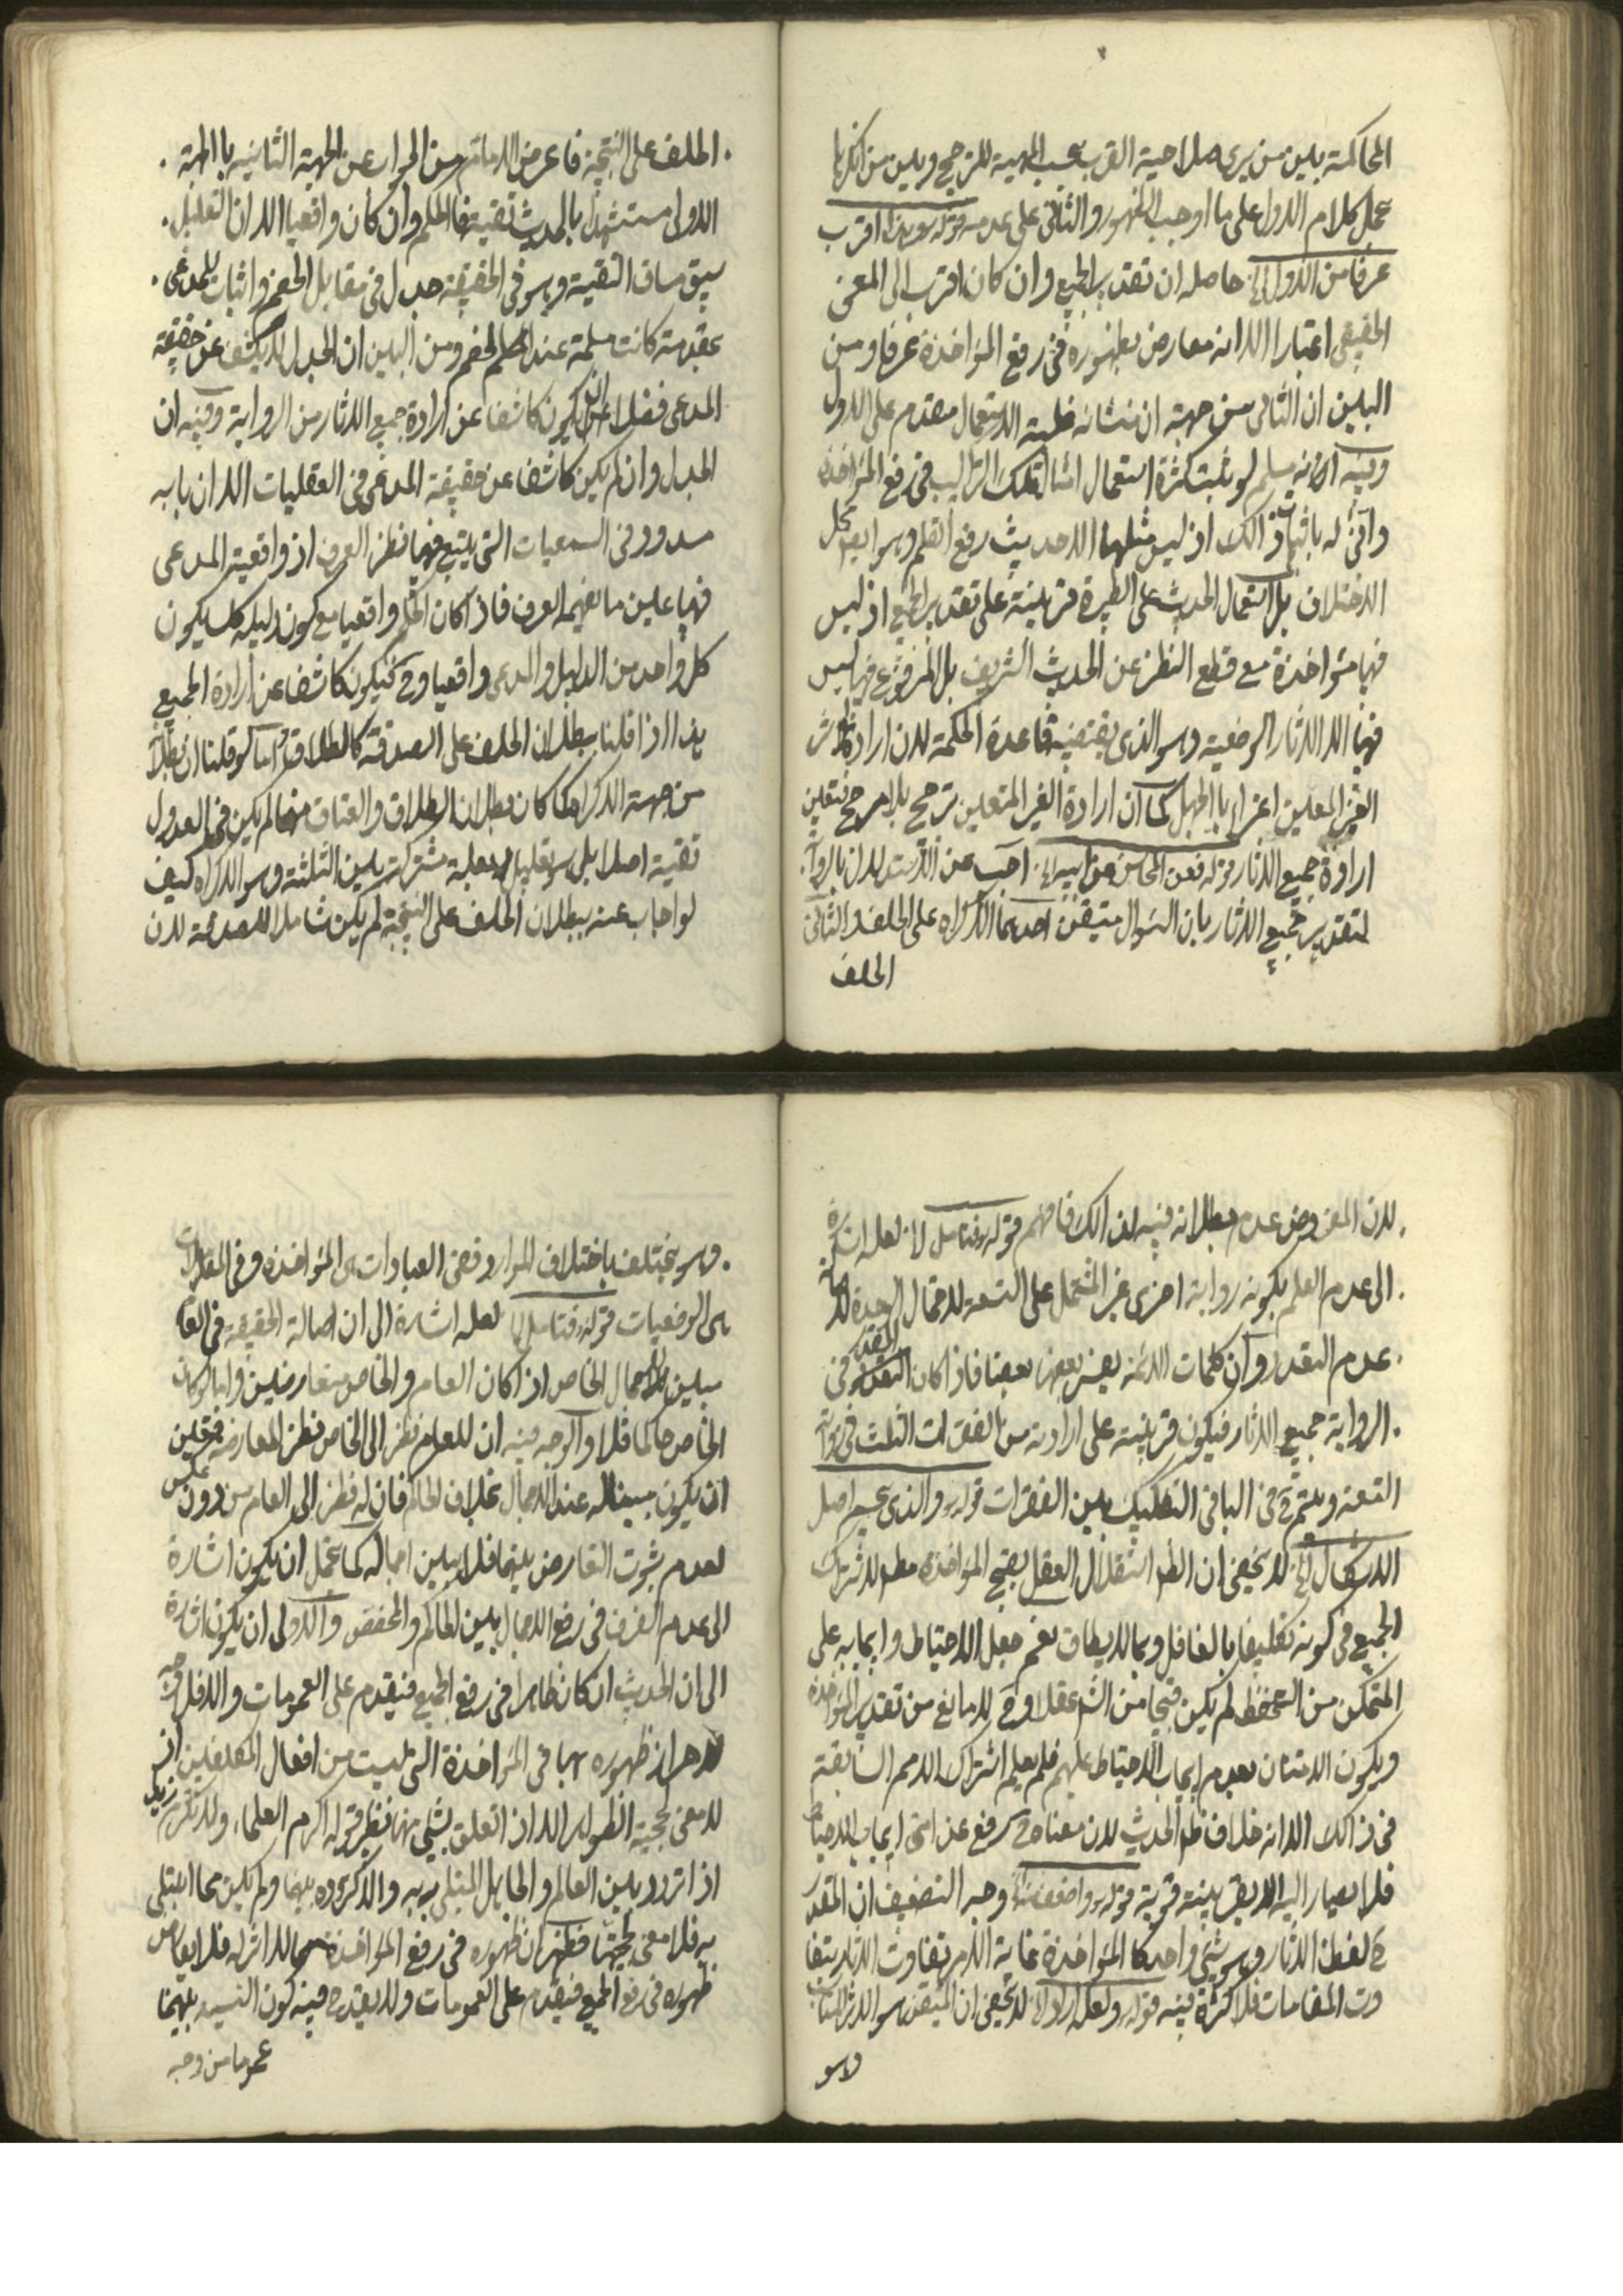 المحاكمة بين من يرى صلاحية القرب بحسب المهية للترجيح وبين من انكرها
بحمل كلام الاول على ما اوجب الظهور والثانى على عدمه قوله هو هذا اقرب
عرفا من الاول الخ حاصله ان تقدير الجميع وان كان اقرب الى المعنى
الحقيقى اعتبارا الا انه معارض بظهوره فى رفع المؤاخذة عرفا ومن
البين ان الثانى من جهة ان منشائه غلبة الاستعمال مقدم على الاول
وفيه انه يسلم لو ثبت كثرة استعمال امثال تلك التراكيب فى رفع المؤاخذة
وانى له باثبات ذالك اذ ليس مثلها الا حديث رفع القلم وهو ايضا محل
الاختلاف بل استعمال الحديث على الطيرة قرينة على تقدير الجميع اذ ليس
فيها مؤاخذة مع قطع النظر عن الحديث الشريف بل المرفوع فيها ليس
فيها الا الاثار الوضعية وهو الذى يقتضيه قاعدة الحكمة لان ارادة
الغير المعين اغراء بالجهل كما ان ارادة الغير المتعين ترجيح بلا مرجح فتعين
ارادة جميع الاثار قوله فعن المحاسن عن ابيه الخ اجيب عن الاستدلال بالرواية
لتقدير جميع الاثار بان السؤال متيقن احدهما الاكراه على الحلف والثانى
الحلف
الحلف على النتيجة فاعرض الامام من الجواب عن الجهة الثانية بالجهة
الاولى مستشهدا بالحديث تقية فالحكم وان كان واقعيا الا ان التعليل
سيق مساق التقية وهو فى الحقيقة جدل فى مقابل الخصم واثبات للمدعى
بمقدمة كانت مسلمة عند الخصم ومن البين ان الجدل لا يكشف عن حقيقة
المدعى فضلا عن ان يكون كاشفا عن ارادة جميع الاثار من الرواية وفيه ان
الجدل وان لم يكن كاشفا عن حقيقة المدعى فى العقليات الا ان بابه
مسدود فى السمعيات التى يتبع فيها نظر العرف اذ واقعية المدعى
فيها عين ما يفهمه العرف فاذا كان الحكم واقعيا مع كون دليله كك يكون
كل واحد من الدليل والمدعى واقعيا وح فيكون كاشفا عن ارادة الجميع
هذا اذا قلنا ببطلان الحلف على الصدقة كالطلاق واما لو قلنا ان بطلانه
من جهة الاكراه كما كان بطلان الطلاق والعتاق منها لم يكن فى العدول
تقية اصلا بل هو تعليل بعلة مشتركة بين الثلثة وهو الاكراه كيف
لو اجاب عنه ببطلان الحلف على النتيجة لم يكن شاملا للصدقة لان
لان المفروض عدم بطلانه فيه لذالك فافهم قوله فتامل لا لعله اشارة
الى عدم العلم بكونه رواية اخرى غير المشتمل على التسعة لاحتمال الوحدة
عدم التعدد وان كلمات الائمة يفسر بعضها بعضا فاذا كان المقدر فى
الرواية جميع الاثار فيكون قرينة على ارادته من الفقرات الثلث فى رواية
التسعة ويتم ح فى الباقى التفكيك بين الفقرات قوله والذى يحسم اصل
الاشكال الخ لا يخفى ان الظ استقلال العقل بقبح المؤاخذة مط لاشتراك
الجميع فى كونه تكليفا بالغافل وبما لا يطاق نعم جعل الاحتياط وايجابه على
المتمكن من التحفظ لم يكن قبيحا من الشرع عقلا وح لا مانع من تقدير المؤاخذة
ويكون الامتنان بعدم ايجاب الاحتياط عليهم فلم يعلم اشتراك الامم السابقة
فى ذالك الا انه خلاف ظ الحديث لان معناه ح رفع عن امتى ايجاب الاحتياط
فلا يصار اليه الا بقرينة قوية قوله واضعف منه وجه التضعيف ان المقدر
ح لفظ الاثار وهو شىء واحد كالمؤاخذة غاية الامر تفاوت الاثار بتفا
وت المقامات فلا كثرة فيه قوله ولعله اراد لا يخفى ان المتيقن هو الاثر المناسب
وهو
وهو يختلف باختلاف الموارد ففى العبادات هى المؤاخذة وفى المعاملات
هى الوضعيات قوله فتامل لعله اشارة الى ان اصالة الحقيقة فى العام
يبين اجمال الخاص اذا كان العام والخاص متعارضين واما لو كان
الخاص حاكما فلا والوجه فيه ان للعام نظر الى الخاص نظر المعارضة فتعين
ان يكون مبينا له عند الاجمال بخلاف الحاكم فان له نظر الى العام من دون عكس
لعدم ثبوت التعارض بينهما فلا يبين اجماله كما يحتمل ان يكون اشارة
الى عدم الفرق فى رفع الاجمال بين الحاكم والمخصص والاولى ان يكون اشارة
الى ان الحديث ان كان ظاهرا فى رفع الجميع فيقدم على العمومات والا فلا وجه
لاحراز ظهوره بها فى المؤاخذة التى ليست من افعال المكلفين اذ
لا معنى لحجية الظواهر الا اذا تعلق بشىء منها نظير قوله اكرم العلماء ولا تكرم زيدا
اذا تردد بين العالم والجاهل المبتلى به والاكرام بينهما ولم يكن مما ابتلى
به فلا معنى لحجيتها فظهر ان ظهوره فى رفع المؤاخذة مما لا اثر له فلا يعارض
ظهوره فى رفع الجميع فيقدم على العمومات ولا يقدح فيه كون النسبة بينهما
عموما من وجه